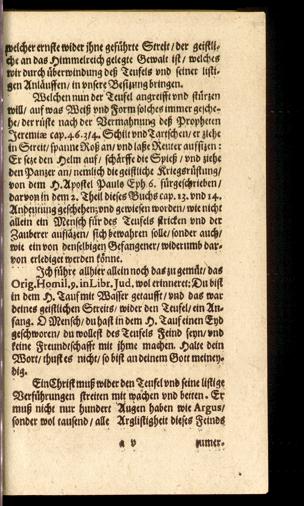 welcher ernste wider ihne geführte Streit / der geistli-
che an das Himmelreich gelegte Gewalt ist / welches
wir durch überwindung deß Teufels vnd seiner listi-
gen Anläuffen / in vnsere Besitzung bringen.
Welchen nun der Teufel angreifft vnd stürzen
will / auf was Weiß vnd Form solches immer gesche-
he / der rüste nach der Vermahnung deß Propheten
Jeremiæ cap. 46. 3/4. Schilt vnd Tartschen / er ziehe
in Streit / spanne Roß an / vnd lasse Reuter aufsitzen:
Er seze den Helm auf / schärffe die Spieß / vnd ziehe
den Panzer an / nemlich die geistliche Kriegsrüstung /
von dem H. Apostel Paulo Eph 6. fürgeschrieben /
darvon in dem 2. Theil dieses Buchs cap. 13. vnd 14.
Andeutung geschehen; vnd gewiesen worden / wie nicht
allein ein Mensch für des Teufels stricken vnd der
Zauberer aufsäzen / sich bewahren solle / sonder auch /
wie ein von denselbigen Gefangener / widerumb dar-
von erlediget werden könne.
Ich führe allhier allein noch das zu gemüt / das
Orig. Homil. 9, in Libr. Jud, wol erinneret: Du bist
in dem H. Tauf mit Wasser getaufft / vnd das war
deines geistlichen Streits / wider den Teufel / ein An-
fang. O Mensch / du hast in dem H. Tauf einen Eyd
geschworen / du wollest des Teufels Feind seyn / vnd
keine Freundschafft mit ihme machen. Halte dein
Wort / thust es nicht / so bist an deinem Gott meiney-
dig.
Ein Christ muß wider den Teufel vnd seine listige
Verführungen streiten mit wachen vnd betten. Er
muß nicht nur hundert Augen haben wie Argus /
sonder wol tausend / alle Arglistigheit dieses Feinds
a v
zumer-